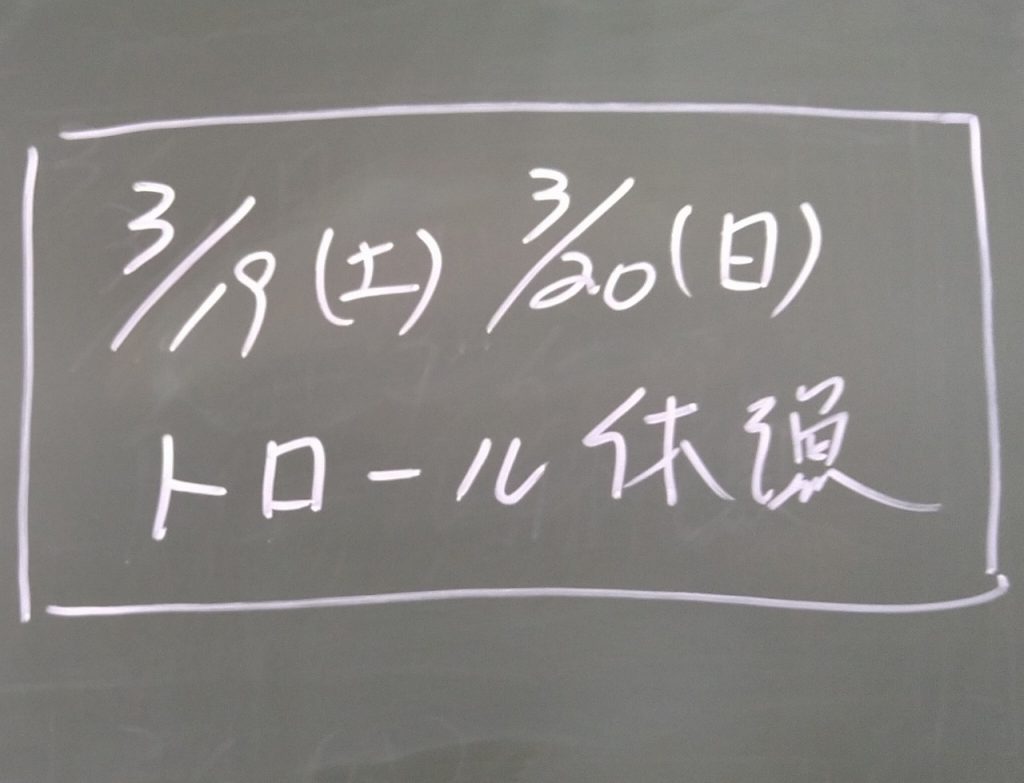 3/19(土) 3/20(日)
トロール休漁